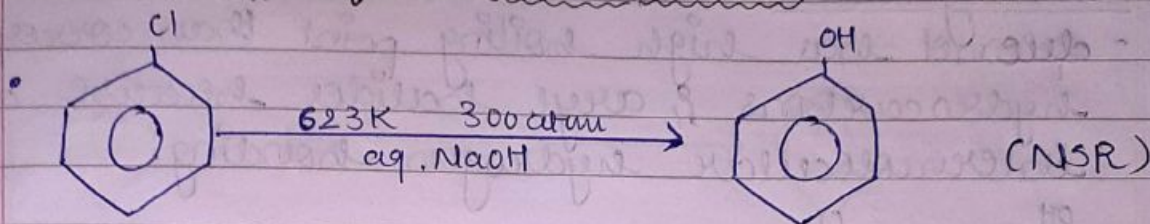 Cl
OH
623K 300 atm
aq. NaOH
(NSR)